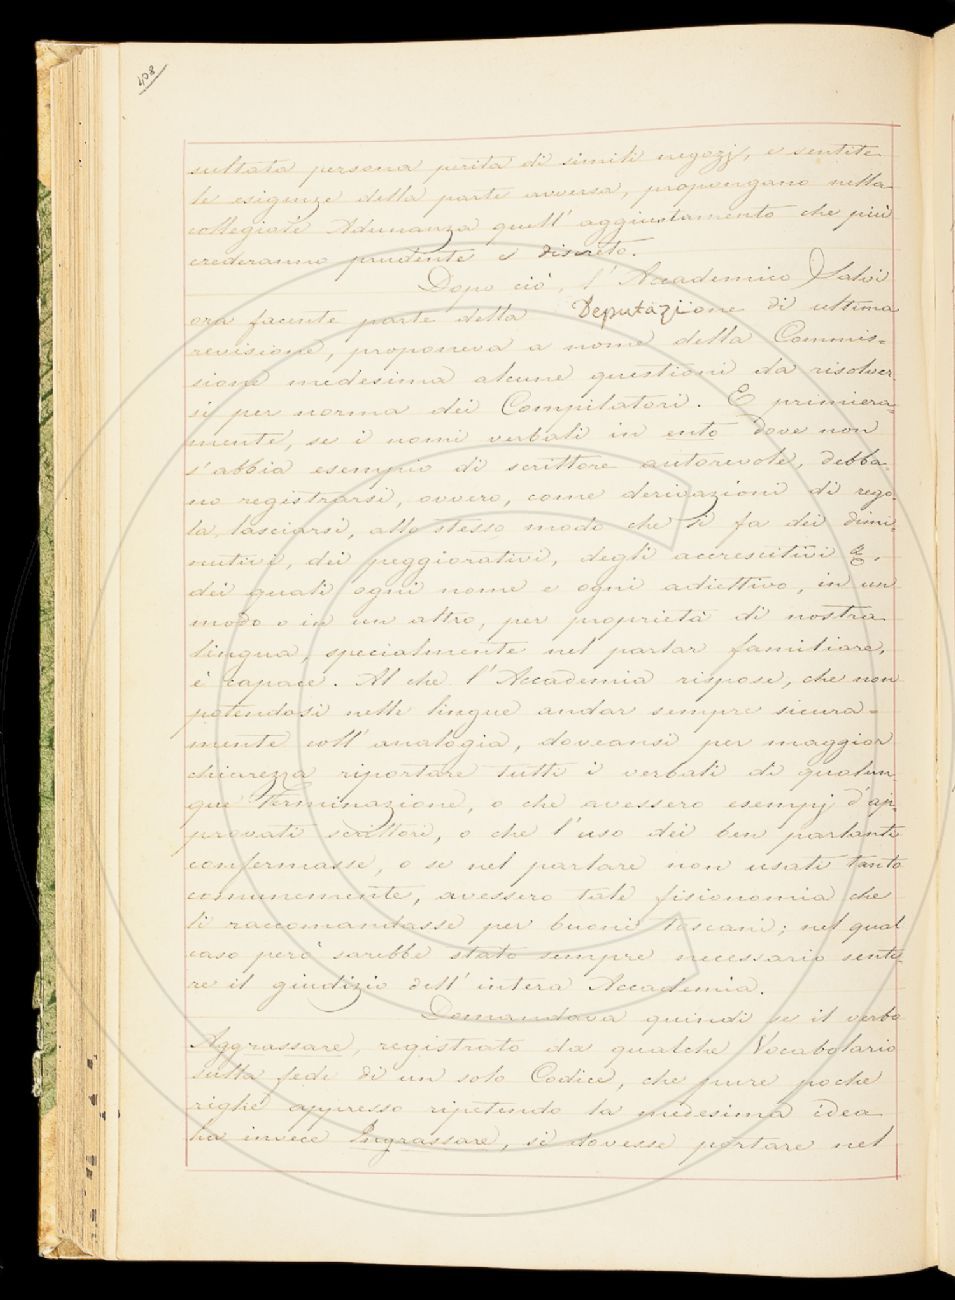 408
sultata persona perita di simili negozj, e sentite
le esigenze della parte avversa, propongano nella
collegiale Adunanza quell' aggiustamento che più
crederanno prudente e discreto.
Dopo ciò, l' Accademico Salvi
ora facente parte della Deputazione di ultima
revisione, proponeva a nome della Commis=
sione medesima alcune questioni da risolver-
si per norma dei Compilatori. E primiera=
mente, se i nomi verbali in ento dove non
s'abbia esempio di scrittore autorevole, debba-
no registrarsi, ovvero, come derivazioni di rego-
la, lasciarsi, allo stesso modo che si fa dei dimi-
nutivi, dei peggiorativi, degli accrescitivi &.
dei quali ogni nome e ogni adiettivo, in un
modo o in un altro, per proprietà di nostra
lingua, specialmente nel parlar familiare,
è capace. Al che l' Accademia rispose, che non
potendosi nelle lingue andar sempre sicura=
mente coll' analogia, doveansi per maggior
chiarezza riportare tutti i verbali di qualun
que terminazione, o che avessero esempj d'ap-
provati scrittori, o che l'uso dei ben parlanti
confermasse, o se nel parlare non usati tanto
comunemente, avessero tale fisionomia che
li raccomandasse per buoni toscani; nel qual
caso però sarebbe stato sempre necessario senti-
re il giudizio dell' intera Accademia.
Domandava quindi se il verbo
Aggrassare, registrato da qualche Vocabolario
sulla fede di un solo Codice, che pure poche
righe appresso ripetendo la medesima idea
ha invece Ingrassare, si dovesse portare nel